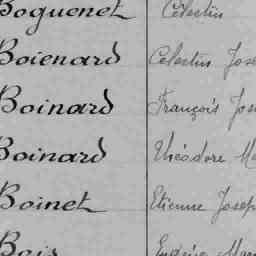 Boguenet Célestin
Boienard Célestin Jose
Boinard François Jose
Boinard Théodore Ma
Boinet Etienne Josep
Bois Eugène Mar